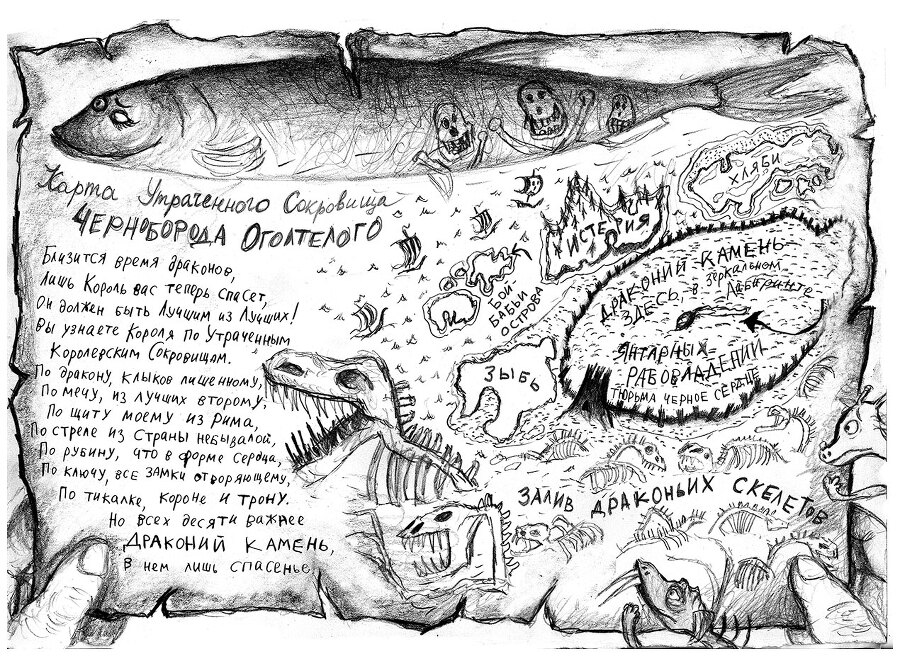 Карта Утраченного Сокровища
Чернoборода Оголтелого
Близится время драконов,
Лишь Король вас теперь спасет,
Он должен быть Лучшим из Лучших!
Вы узнаете Короля по Утраченным
Королевским Сокровищам.
По дракону, клыков лишенному,
По мечу, из лучших второму,
По щиту моему из Рима,
По стреле из Страны небывалой,
По рубину, что в форме сердца,
По ключу, все замки отворяющему,
По тикалке, короне и трону.
Но всех десяти важнее
Драконий Камень,
В нем лишь спасенье
Хляби
Истерия
Бой-
Бабьи
острова
Зыбь
Драконий Камень
здесь, в зеркальном
Лабиринте
Янтарных
Рабовладений
Тюрьма Черное Сердце
Залив Драконьих Скелетов